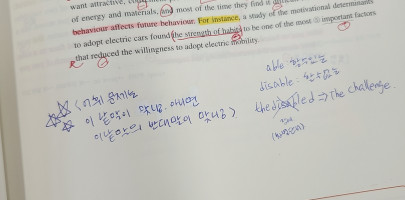 want attractive,
of energy and materials, and most of the time they find it
behaviour affects future behaviour. For instance, a study of the motivational determinants
to adopt electric cars found the strength of habit to be one of the most ③ important factors
that reduced the willingness to adopt electric mobility.
able 할수있는
disable : 할수없는
the disabled ⇒ The challenge.
<어휘 문제는
이 낱말이 맞니? 아니면
이 낱말의 반대말이 맞니?>